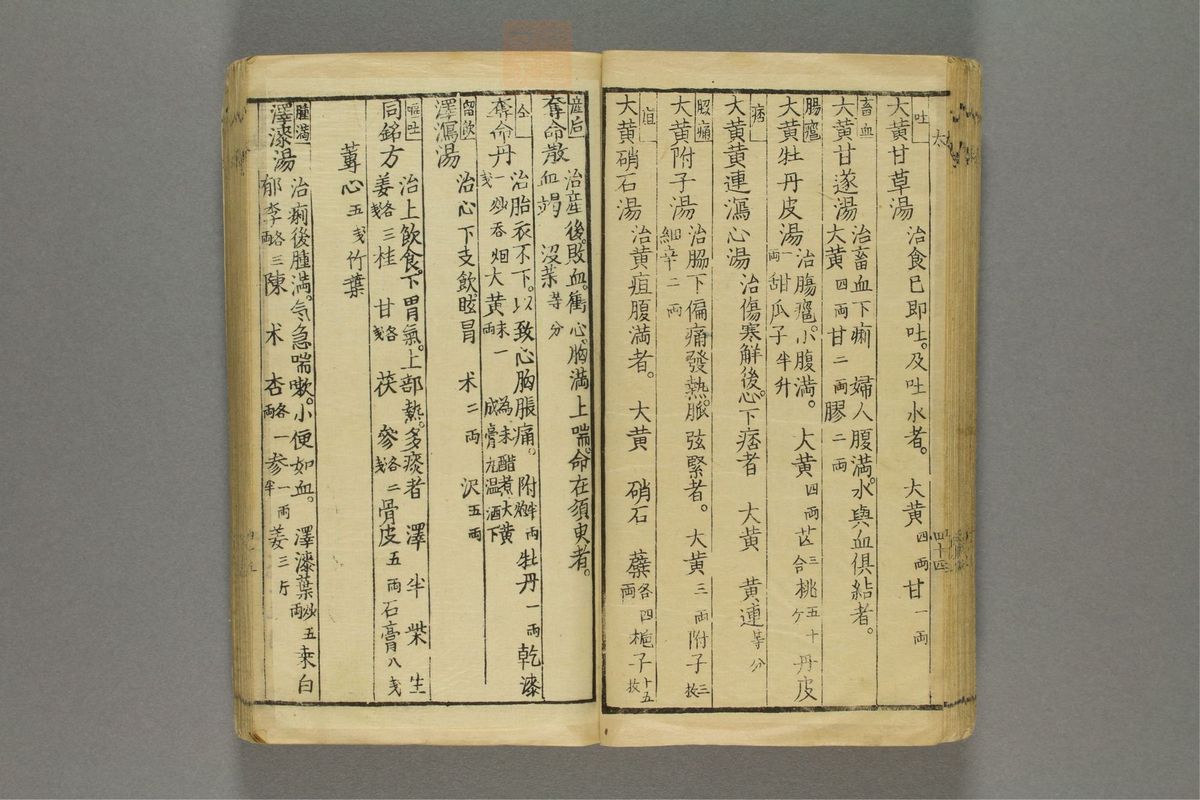 吐
大黄甘草湯
治食已即吐。及吐水者。 大黄四両 甘一両
畜血
大黄甘遂湯
治畜血下痢 婦人腹満。水與血倶結者。
大黄四両 甘二両 膠二両
腸癰
大黄牡丹皮湯
治腸癰。小腹満。 大黄四両 芒三合 桃五十ケ 丹皮
一両 甜瓜子半升
痞
大黄黄連瀉心湯
治傷寒解後。心下痞者 大黄 黄連等分
脇痛
大黄附子湯
治脇下偏痛發熱。脈弦緊者。 大黄三両 附子三枚
細辛二両
疸
大黄硝石湯
治黄疸腹満者。 大黄 硝石 蘗各四両 梔子十五枚
産后
奪命散
治産後。敗血。衝心。胸満上喘。命在須臾者。
血竭 沒薬等分
仝
奪命丹
治胎衣不下。以致心胸脹痛。 附炮半両 牡丹一両 乾漆
大黄末一両 為末醋煮大黄
成膏丸温酒下
留飲
澤瀉湯
治心下支飲眩冒 术二両 沢五両
嘔吐
同銘方
治上飲食。下胃氣。上部熱。多痰者 澤 半 柴 生
姜各三戔 桂 甘各戔 茯 參各二戔 骨皮五両 石膏八戔
蕁心五戔 竹葉
腫満
澤漆湯
治痢後腫満。气急喘嗽。小便如血。 澤漆葉炒五両 桒白
郁李各三両 陳 术 杏各一両 参一両半 姜三斤
四十四